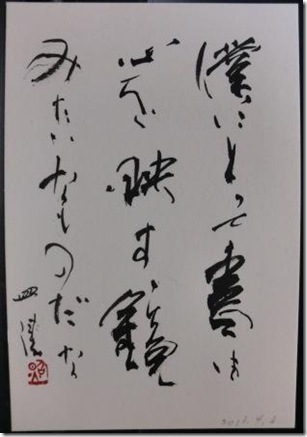 僕にとって書は
心を映す鏡
みたいなものだな